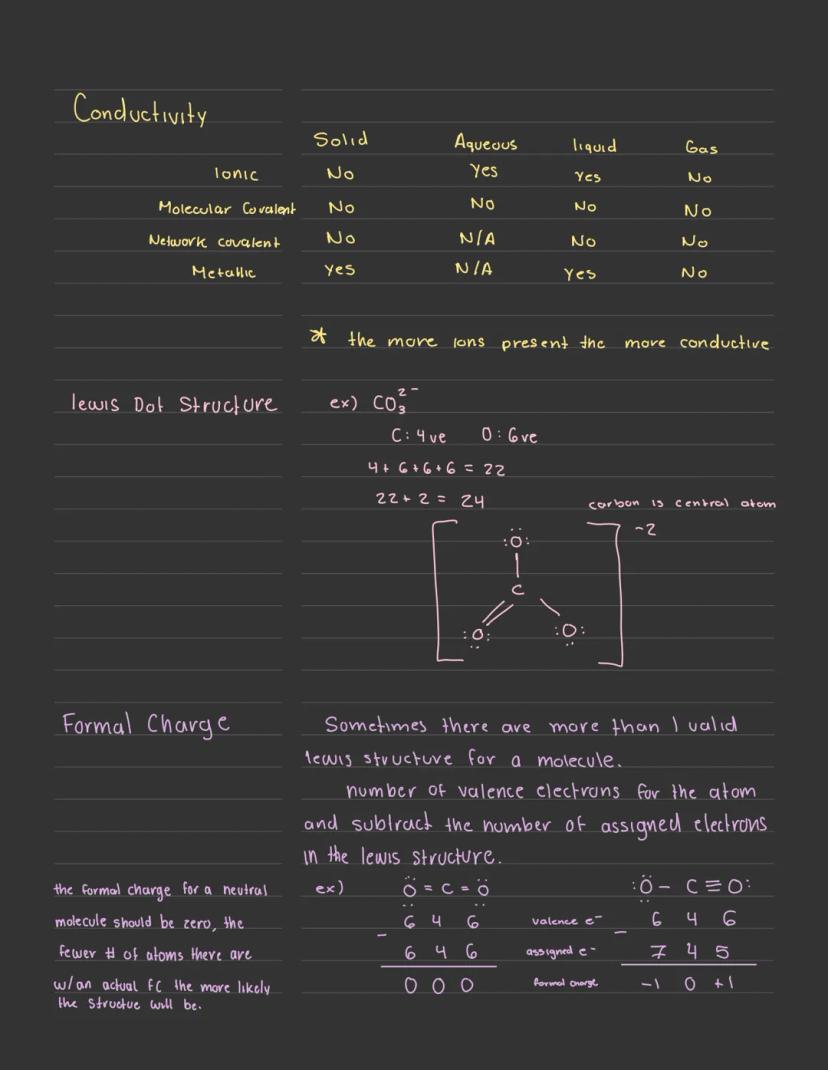 Conductivity
Solid Aqueous liquid Gas
Ionic No Yes Yes No
Molecular Covalent No No No No
Network covalent No N/A No No
Metallic Yes N/A Yes No
* the more ions present the more conductive
lewis Dot Structure ex) CO₃²⁻
C: 4ve O: 6ve
4+ 6+6+6 = 22
22+ 2 = 24
carbon is central atom
-2
:Ö:
C
:O: :O:
Formal Charge Sometimes there are more than 1 valid
lewis structure for a molecule.
number of valence electrons for the atom
and subtract the number of assigned electrons
in the lewis structure.
the formal charge for a neutral
molecule should be zero, the
fewer # of atoms there are
w/an actual FC the more likely
the structue will be.
ex) Ö = C = Ö :Ö - C ≡ O:
6 4 6 valence e- 6 4 6
- 6 4 6 assigned e- - 7 4 5
0 0 0 formal charge -1 0 +1